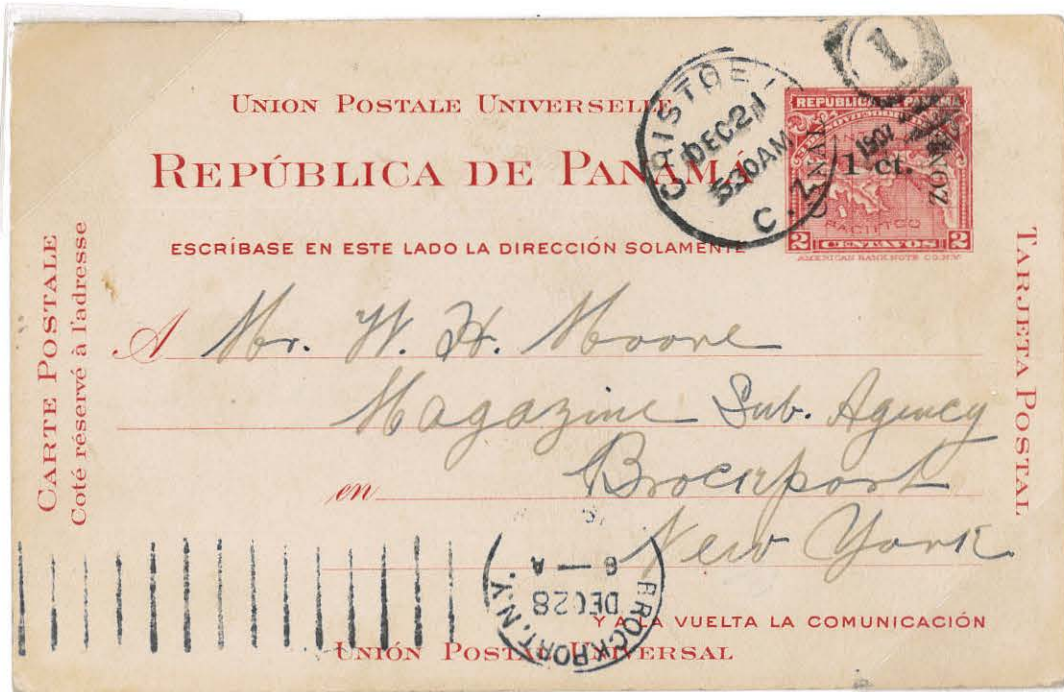 UNION POSTALE UNIVERSELLE
REPÚBLICA DE PANAMÁ
ESCRÍBASE EN ESTE LADO LA DIRECCIÓN SOLAMENTE
CRISTOBAL
DEC 21
5 30 AM
C.Z.
1
1907
REPUBLICA DE PANAMA
CANAL
ZONE
1 ct.
PACIFICO
2 CENTAVOS 2
AMERICAN BANK NOTE CO. N.Y.
CARTE POSTALE
Coté réservé à l'adresse
TARJETA POSTAL
A Mr. W. H. Moore
Magazine Sub. Agency
en Brockport
New York
BROCKPORT, N.Y.
DEC 28
6 — A
Y A LA VUELTA LA COMUNICACIÓN
UNIÓN POSTAL UNIVERSAL